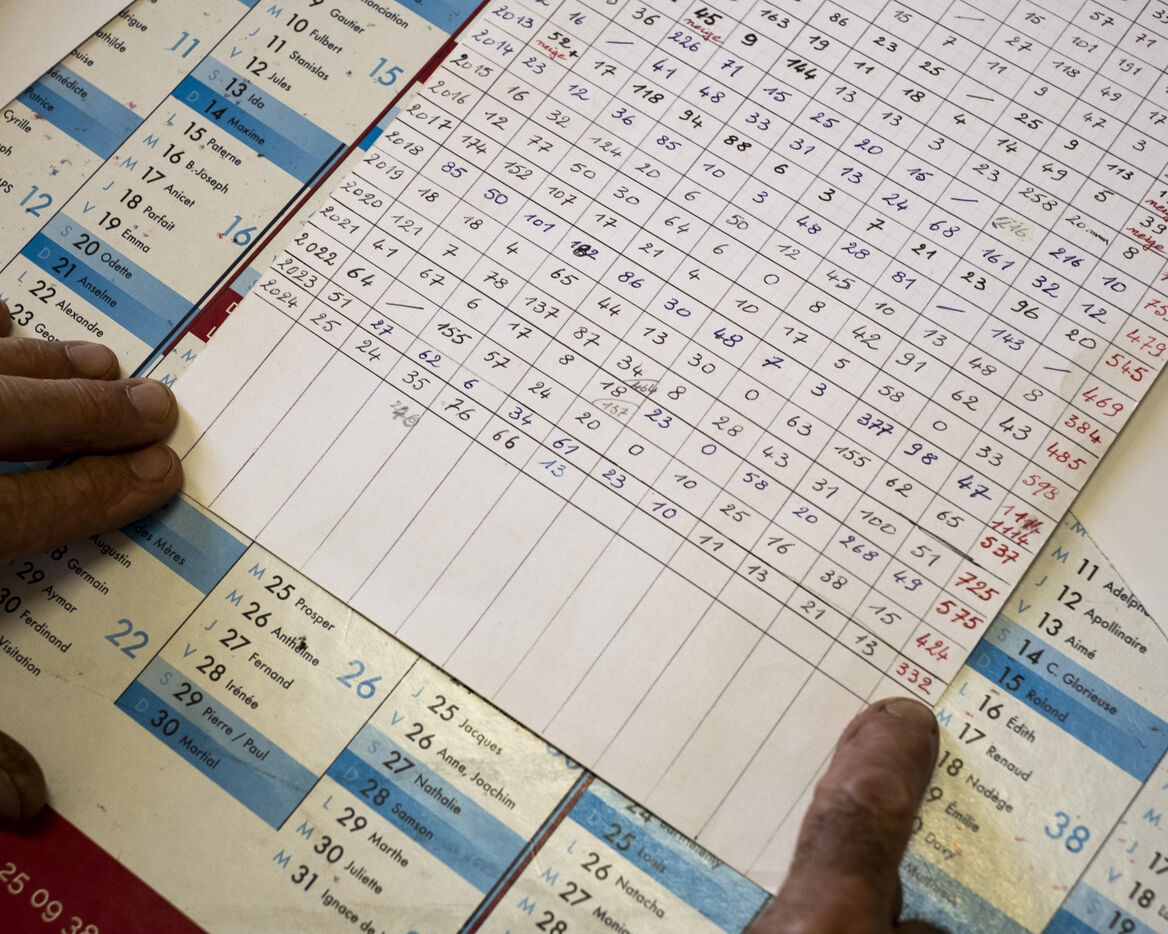 57 71
15 101 191
— 27 118 49 17
15 7 11 9 47 3
86 23 25 — 25 9 113
163 19 11 18 4 14 49 5 39 neige
45 neige 9 144 13 13 3 23 253 20 mm 8
36 226 71 15 25 20 15 — 216 216 10
16 — 41 48 33 31 13 24 68 161 32 12 479
2013 52+ neige 17 118 94 88 6 3 7 21 23 96 20 545
2014 23 12 36 85 10 3 48 28 81 — 143 — 469
2015 16 32 124 20 6 50 12 45 10 13 48 8 384
2016 12 77 50 30 64 6 0 8 42 91 62 43 485
2017 174 152 107 17 21 4 10 17 5 58 0 33 598
2018 85 50 101 182 86 30 48 7 3 377 98 47 1114
2019 18 18 4 65 44 13 30 0 63 155 62 65 537
2020 121 7 78 137 87 34 8 28 43 31 100 51 725
2021 41 67 6 17 8 18 23 0 58 20 268 49 575
2022 64 — 155 57 24 20 0 10 25 16 38 15 424
2023 51 27 62 6 34 61 23 10 11 13 21 13 332
2024 25 24 35 76 66 13
157
11
Bénédicte
Patrice
Cyrille
12
9 Gautier
M 10 Fulbert
J 11 Stanislas
15
V 12 Jules
S 13 Ida
D 14 Maxime
L 15 Paterne
M 16 B.-Joseph
M 17 Anicet
J 18 Parfait
16
V 19 Emma
S 20 Odette
D 21 Anselme
L 22 Alexandre
23
des Mères
Augustin
28 Germain
29 Aymar
30 Ferdinand
22
Visitation
M 25 Prosper
M 26 Anthelme
J 27 Fernand
26
V 28 Irénée
S 29 Pierre / Paul
D 30 Martial
J 25 Jacques
V 26 Anne, Joachim
S 27 Nathalie
D 28 Samson
L 29 Marthe
M 30 Juliette
M 31 Ignace de
D 25 Louis
L 26 Natacha
M 27
M 28
M 11
J 12 Apollinaire
V 13 Aimé
S 14 C. Glorieuse
D 15 Roland
L 16 Édith
M 17 Renaud
18 Nadège
Émilie
38
Davy
M 17
V 18
S 19
25 09 38